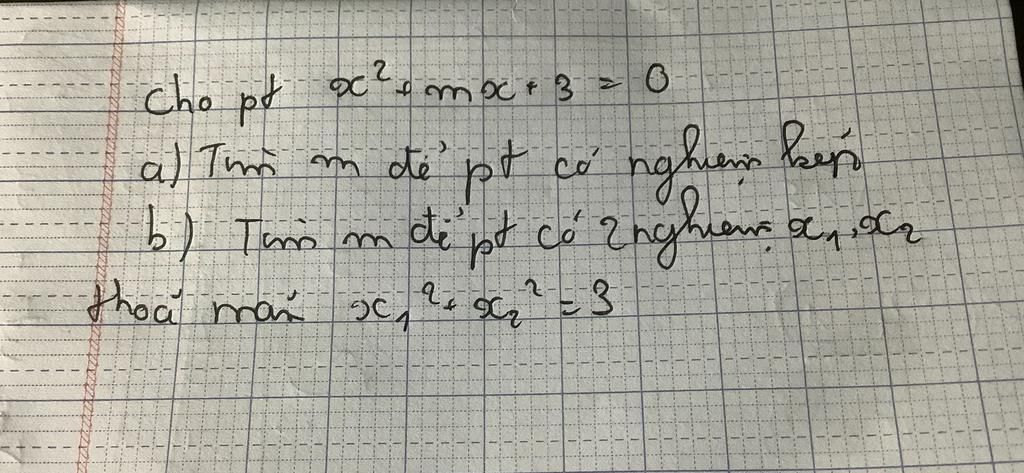 Cho pt x² + mx + 3 = 0
a) Tìm m để pt có nghiệm kép
b) Tìm m để pt có 2 nghiệm x₁, x₂
thoả mãn x₁² + x₂² = 3